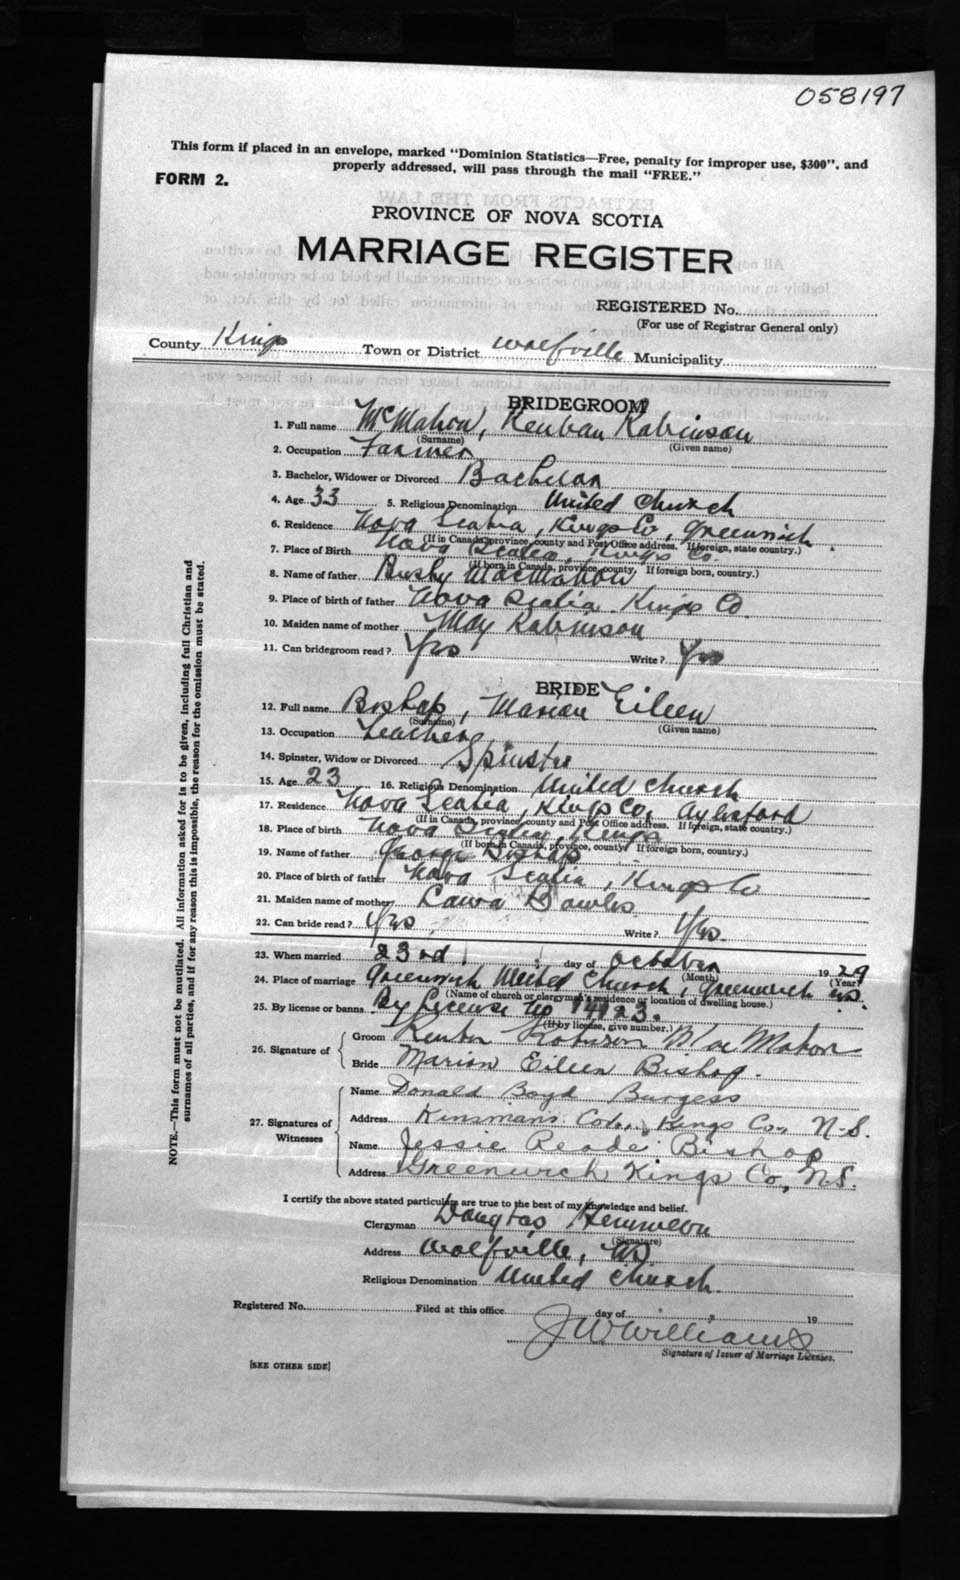 058197
This form if placed in an envelope, marked "Dominion Statistics—Free, penalty for improper use, $300", and
properly addressed, will pass through the mail "FREE."
FORM 2.
PROVINCE OF NOVA SCOTIA
MARRIAGE REGISTER
REGISTERED No.
(For use of Registrar General only)
County Kings Town or District Wolfville Municipality
BRIDEGROOM
1. Full name McMahon, Reuban Robinson
(Surname) (Given name)
2. Occupation Farmer
3. Bachelor, Widower or Divorced Bachelor
4. Age 33 5. Religious Denomination United Church
6. Residence Nova Scotia, Kings Co, Greenwich.
(If in Canada, province, county and Post Office address. If foreign, state country.)
7. Place of Birth Nova Scotia, Kings Co.
(If born in Canada, province, county. If foreign born, country.)
8. Name of father Busby MacMahon
9. Place of birth of father Nova Scotia Kings Co
10. Maiden name of mother May Robinson
11. Can bridegroom read? Yes Write? Yes
BRIDE
12. Full name Bishop, Marion Eileen
(Surname) (Given name)
13. Occupation Teacher
14. Spinster, Widow or Divorced Spinster
15. Age 23 16. Religious Denomination United Church
17. Residence Nova Scotia, Kings Co, Aylesford
(If in Canada, province, county and Post Office address. If foreign, state country.)
18. Place of birth Nova Scotia, Kings
(If born in Canada, province, county. If foreign born, country.)
19. Name of father George Bishop
20. Place of birth of father Nova Scotia, Kings Co
21. Maiden name of mother Laura Bowles
22. Can bride read? Yes Write? Yes.
23. When married 23rd day of October 1929
(Month) (Year)
24. Place of marriage Greenwich United Church, Greenwich N.S.
(Name of church or clergyman's residence or location of dwelling house.)
25. By license or banns By License No 14123.
(If by license, give number.)
26. Signature of
Groom Reuben Robinson MacMahon
Bride Marion Eileen Bishop.
27. Signatures of Witnesses
Name Donald Boyd Burgess
Address Kinsman's Cor., Kings Co., N.S.
Name Jessie Reade Bishop
Address Greenwich Kings Co., N.S.
I certify the above stated particulars are true to the best of my knowledge and belief.
Clergyman Douglas Hemmeon
(Signature)
Address Wolfville, NS
Religious Denomination United Church.
Registered No. Filed at this office day of 19
J W Williams
Signature of Issuer of Marriage Licenses.
[SEE OTHER SIDE]
NOTE.—This form must not be mutilated. All information asked for is to be given, including full Christian and
surnames of all parties, and if for any reason this is impossible, the reason for the omission must be stated.